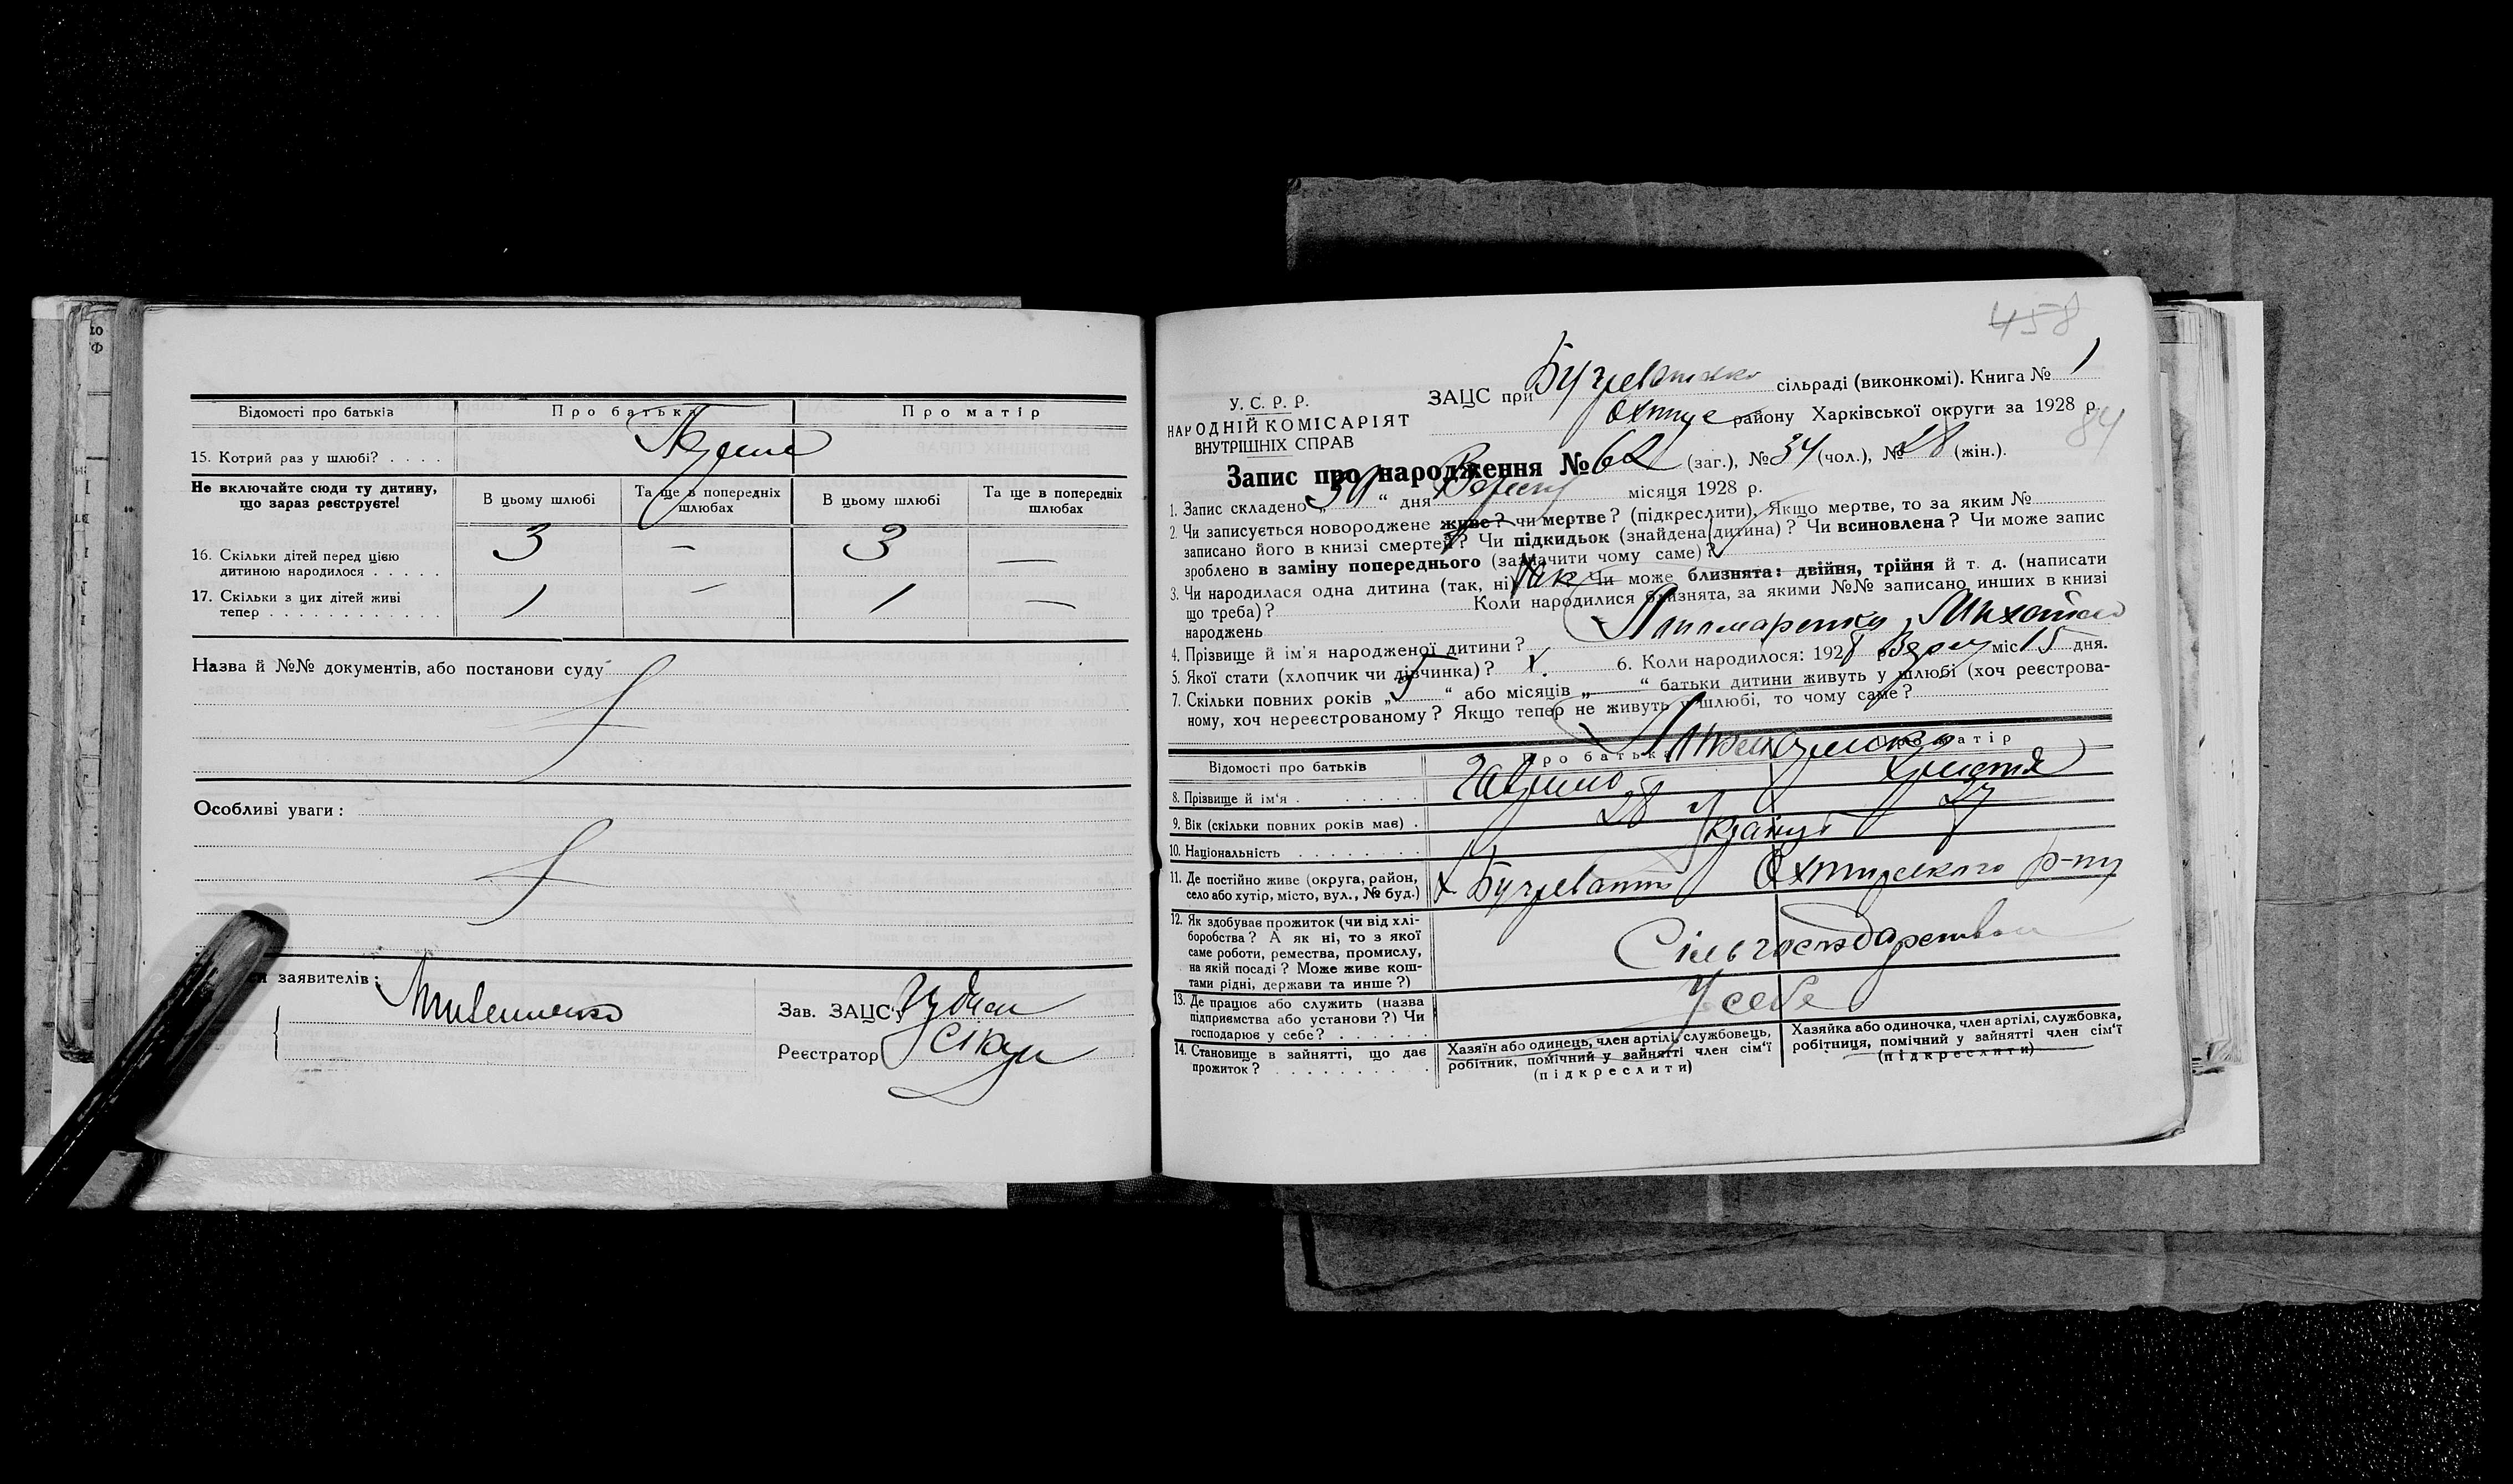 Відомості про батьків Про батька Про матір
15. Котрий раз у шлюбі? . . . .
Не включайте сюди ту дитину, що зараз реєструєте!
В цьому шлюбі Та ще в попередніх шлюбах В цьому шлюбі Та ще в попередніх шлюбах
16. Скільки дітей перед цією
дитиною народилося . . . . . 3 — 3 —
17. Скільки з цих дітей живі
тепер . . . . . . . . . . . . 1 — 1 —
Назва й №№ документів, або постанови суду
Особливі уваги:
заявителів:
Зав. ЗАЦС'у
Реєстратор
458
84
У. С. Р. Р.
НАРОДНІЙ КОМІСАРІЯТ
ВНУТРІШНІХ СПРАВ
ЗАЦС при сільраді (виконкомі). Книга № 1
району Харківської округи за 1928 р.
Запис про народження № 62 (заг.), № 34 (чол.), № 28 (жін.).
1. Запис складено „30“ дня Вересня місяця 1928 р.
2. Чи записується новороджене живе? чи мертве? (підкреслити). Якщо мертве, то за яким №
записано його в книзі смертей? Чи підкидьок (знайдена дитина)? Чи всиновлена? Чи може запис
зроблено в заміну попереднього (зазначити чому саме)?
3. Чи народилася одна дитина (так, ні) так Чи може близнята: двійня, трійня й т. д. (написати
що треба)? Коли народилися близнята, за якими №№ записано инших в книзі
народжень
4. Прізвище й ім'я народженої дитини? Пономаренко
5. Якої стати (хлопчик чи дівчинка)? х. 6. Коли народилося: 1928 р. міс 15 дня.
7. Скільки повних років „5“ або місяців „—“ батьки дитини живуть у шлюбі (хоч реєстрова-
ному, хоч нереєстрованому? Якщо тепер не живуть у шлюбі, то чому саме?
Відомості про батьків Про батька Про матір
8. Прізвище й ім'я . . . . . . . Гаврило Христя
9. Вік (скільки повних років має) . 28 27
10. Національність . . . . . . . .
11. Де постійно живе (округа, район,
село або хутір, місто, вул., № буд.) х Бугреватий Охтирського р-ну
12. Як здобуває прожиток (чи від хлі-
боробства? А як ні, то з якої
саме роботи, ремества, промислу,
на якій посаді? Може живе кош-
тами рідні, держави та инше?) Сільгосподарством
13. Де працює або служить (назва
підприємства або установи?) Чи
господарює у себе? . . . . . . У себе
14. Становище в зайнятті, що дає
прожиток? . . . . . . . . . .
Хазяїн або одинець, член артілі, службовець,
робітник, помічний у зайнятті член сім'ї
(підкреслити)
Хазяйка або одиночка, член артілі, службовка,
робітниця, помічний у зайнятті член сім'ї
(підкреслити)